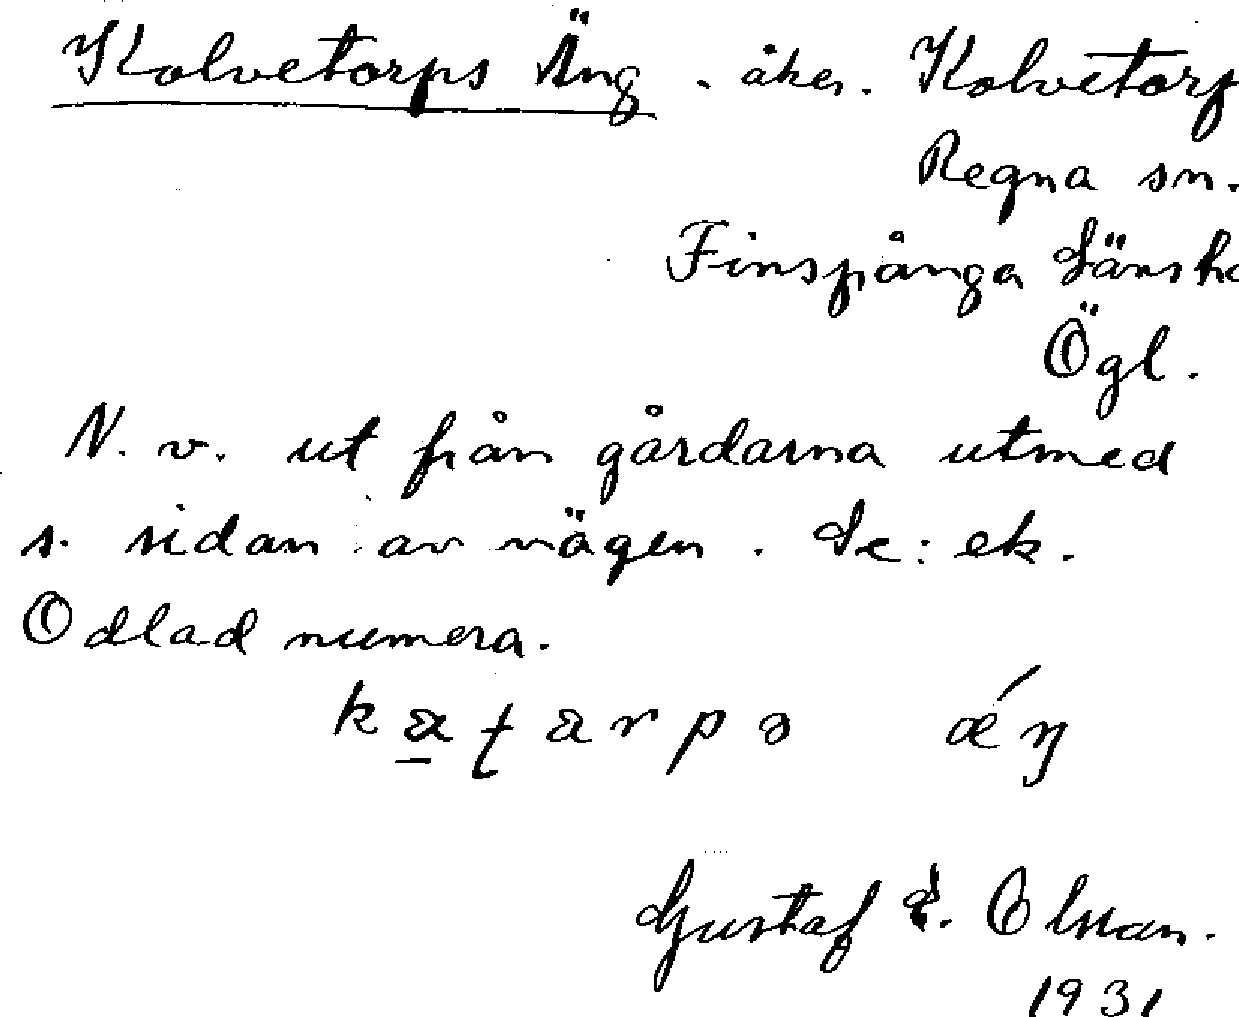 Kolvetorps Äng. åker. Kolvetorp
Regna sn.
Finspånga Länsh
Ögl.
N. v. ut från gårdarna utmed
s. sidan av vägen. Se: ek.
Odlad numera.
Gustaf Olsson.
1931